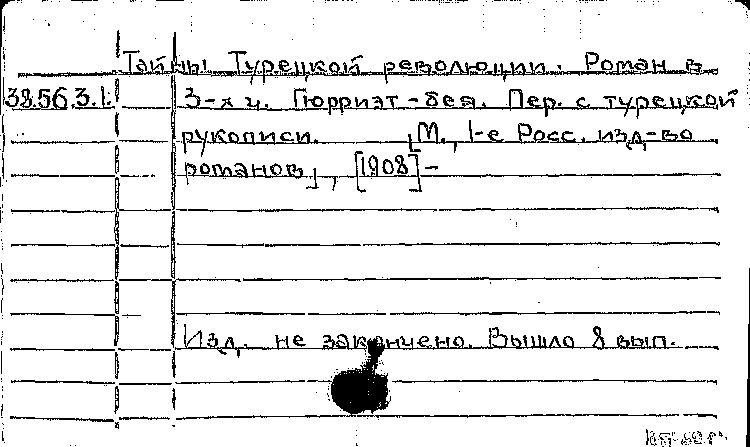 Тайны Турецкой революции. Роман в
38.56.3.1. 3-х ч. Гюрриэт-бея. Пер. с турецкой
рукописи. [М., 1-е Росс. изд-во
романов], [1908]-
Изд. не закончено. Вышло 8 вып.